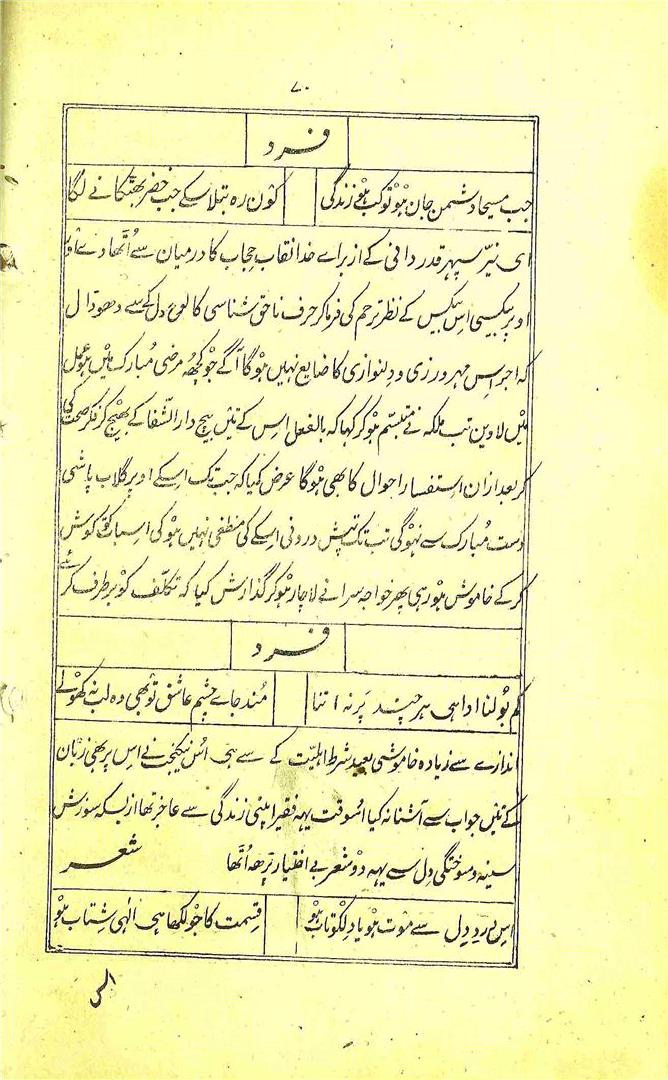 ۷۰
فرد
جب مسیحا دشمن جان ہو تو کب ہو زندگی کون رہ بتلا سکے جب خضر بھٹکانے لگا
ای نیّر سپہر قدردانی کے از براے خدا نقاب حجاب کا درمیان سے اُٹھا دے اور
اوپر بیکسی اس بیکس کے نظر ترحم کی فرما کر حرف ناحق شناسی کا لوح دل کے سے دھو ڈال
کہ اجر اس مہر ورزی و دلنوازی کا ضایع نہیں ہوگا آگے جو کچھہ مرضی مُبارک میں ہو عمل
میں لاوین تب ملکہ نے متبسّم ہو کر کہا کہ بالفعل اس کے تئیں بیچ دار الشّفا کے بھیج کر فکر صحت کی
کر بعد ازان استفسار احوال کا بھی ہوگا عرض کیا کہ جب تک اسکے اوپر گلاب پاشی
دست مُبارک سے نہوگی تب تک تپش درونی اسکے کی منطفی نہیں ہو کی اسبات کو گوش
کر کے خاموش ہو رہی پھر خواجہ سرا نے لاچار ہو کر گذارش کیا کہ تکلّف کو برطرف کرئے
فرد
کم بولنا ادا ہی ہر چند پر نہ اتنا مُند جاے چشم عاشق تو بھی وہ لب نہ کھولے
اندازے سے زیادہ خاموشی بعید شرط اہلیت کے سے ہی اُس نیکبخت نے اس پر بھی زبان
کے تئیں جواب سے آشنا نہ کیا اُسوقت یہہ فقیر اپنی زندگی سے عاجز تھا از بسکہ سوزش
سینہ و سوختگی دل سے یہہ دو شعر بے اختیار پڑھہ اُٹھا شعر
اس درد دل سے موت ہو یا دلکو تاب ہو قسمت کا جو لکھا ہی الٰہی شتاب ہو